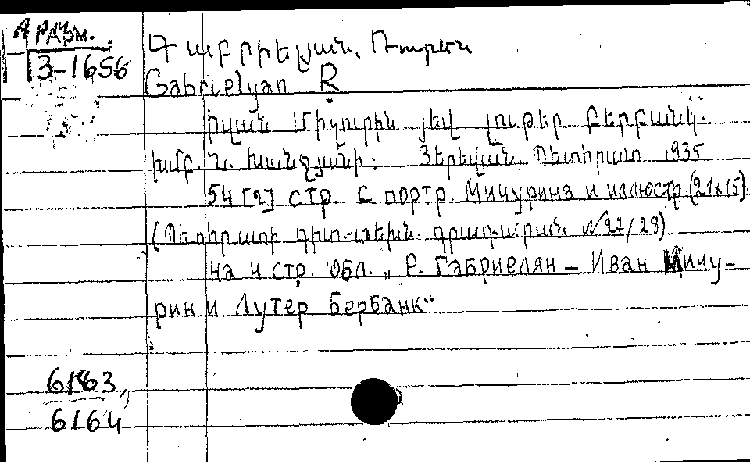 АРАЗМ.
3-1656
Գաբրիելյան, Ռուբեն
Gabrielyan R
Իվան Միչուրին յեվ Լութեր Բերբանկ.
խմբ. Ն. Խանջյանի: Յերեվան. Պետհրատ 1935
54 [2] стр. с портр. Мичурина и иллюстр. (21x15)
(Պետհրատի գիտ-տեխն. գրադարան № 27/29)
На 4 стр. обл. „Р. Габриелян – Иван Мичу-
рин и Лутер Бербанк“
6163,
6164